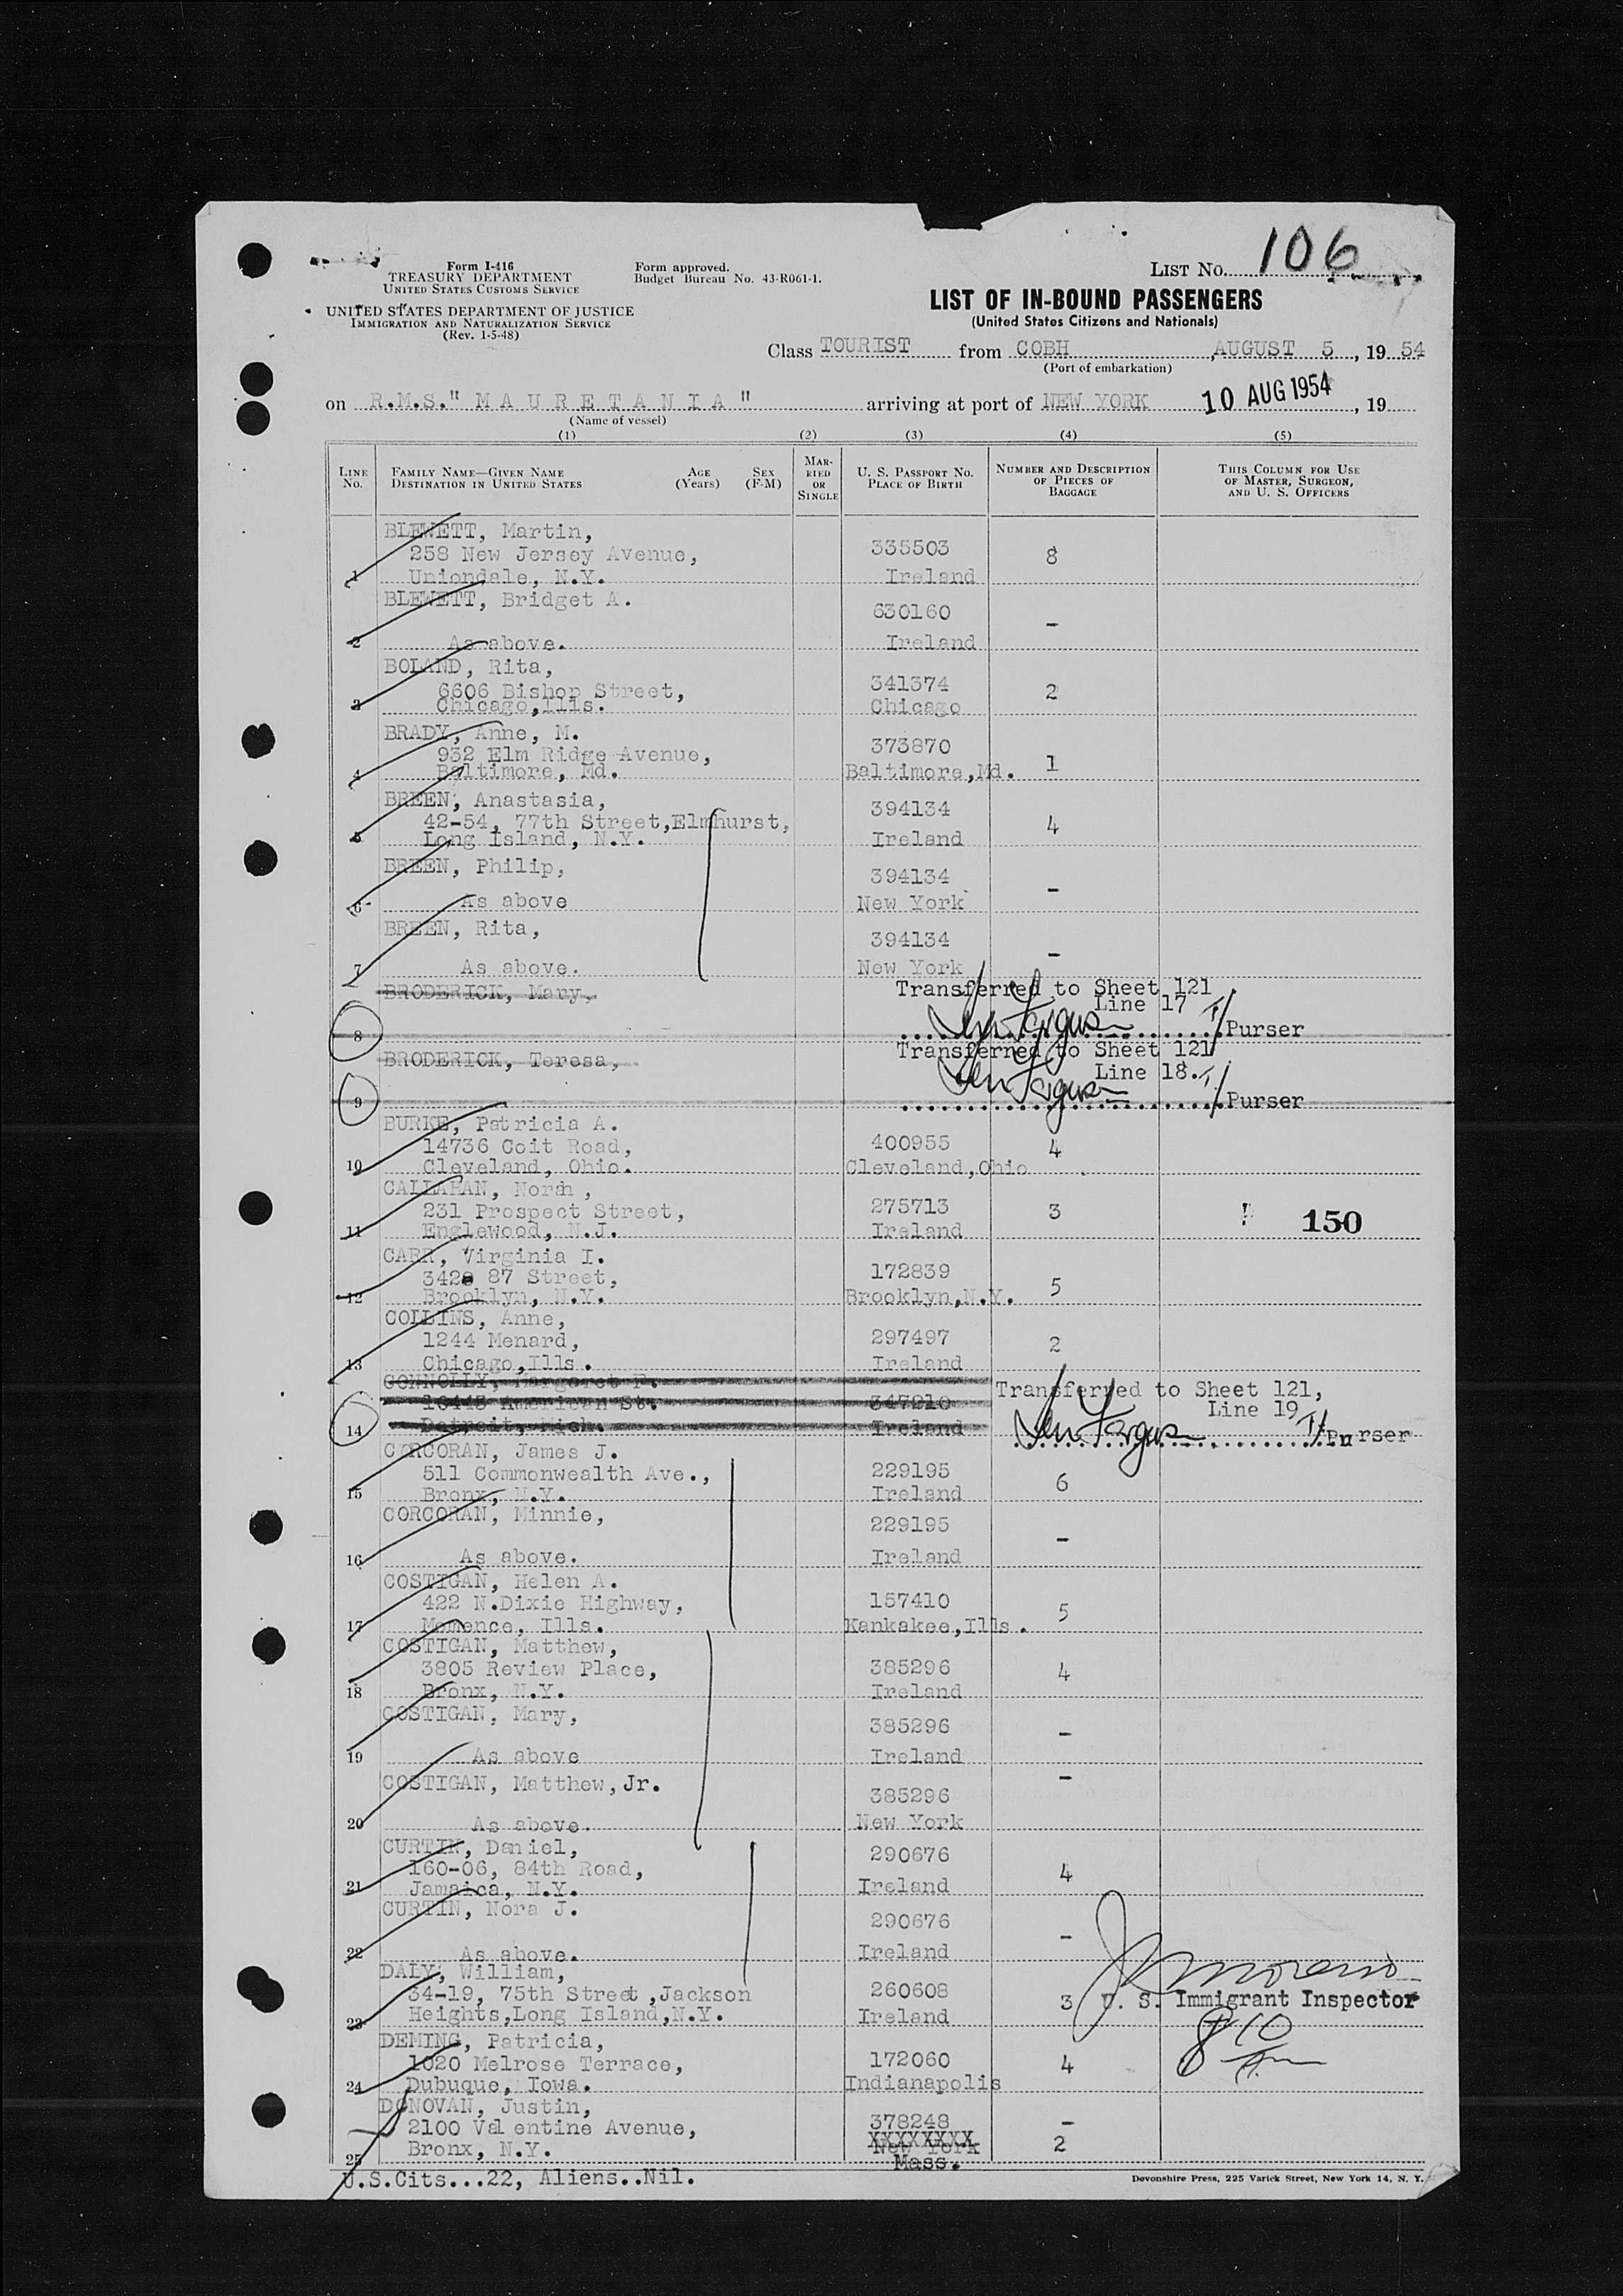 LIST NO. 106
Form I-416
TREASURY DEPARTMENT
UNITED STATES CUSTOMS SERVICE
Form approved.
Budget Bureau No. 43-R061-1.
UNITED STATES DEPARTMENT OF JUSTICE
IMMIGRATION AND NATURALIZATION SERVICE
(Rev. 1-5-48)
LIST OF IN-BOUND PASSENGERS
(United States Citizens and Nationals)
Class TOURIST from COBH , AUGUST 5 , 19 54
(Port of embarkation)
on R.M.S." M A U R E T A N I A " arriving at port of NEW YORK 10 AUG 1954 , 19
(Name of vessel)
(1) (2) (3) (4) (5)
LINE NO.
FAMILY NAME—GIVEN NAME
DESTINATION IN UNITED STATES
AGE (Years)
SEX (F-M)
MARRIED OR SINGLE
U. S. PASSPORT NO.
PLACE OF BIRTH
NUMBER AND DESCRIPTION OF PIECES OF BAGGAGE
THIS COLUMN FOR USE OF MASTER, SURGEON, AND U. S. OFFICERS
BLEWETT, Martin,
258 New Jersey Avenue, 335503 8
1 Uniondale, N.Y. Ireland
BLEWETT, Bridget A. 630160 -
2 As above. Ireland
BOLAND, Rita,
6606 Bishop Street, 341374 2
3 Chicago,Ills. Chicago
BRADY, Anne, M.
932 Elm Ridge Avenue, 373870 1
4 Baltimore, Md. Baltimore,Md.
BREEN, Anastasia,
42-54, 77th Street,Elmhurst, 394134 4
5 Long Island, N.Y. Ireland
BREEN, Philip, 394134 -
6 As above New York
BREEN, Rita, 394134 -
7 As above. New York
BRODERICK, Mary, Transferred to Sheet 121
Line 17
8 Purser
BRODERICK, Teresa, Transferred to Sheet 121
Line 18.
9 Purser
BURKE, Patricia A.
14736 Coit Road, 400955 4
10 Cleveland, Ohio. Cleveland,Ohio
CALLAHAN, Norah,
231 Prospect Street, 275713 3 150
11 Englewood, N.J. Ireland
CARR, Virginia I.
342 87 Street, 172839 5
12 Brooklyn, N.Y. Brooklyn,N.Y.
COLLINS, Anne,
1244 Menard, 297497 2
13 Chicago,Ills. Ireland
CONNOLLY, Margaret F. Transferred to Sheet 121,
American St. 347210 Line 19
14 Detroit, Mich. Ireland Purser
CORCORAN, James J.
511 Commonwealth Ave., 229195 6
15 Bronx, N.Y. Ireland
CORCORAN, Minnie, 229195 -
16 As above. Ireland
COSTIGAN, Helen A.
422 N.Dixie Highway, 157410 5
17 Momence, Ills. Kankakee,Ills.
COSTIGAN, Matthew,
3805 Review Place, 385296 4
18 Bronx, N.Y. Ireland
COSTIGAN, Mary, 385296 -
19 As above Ireland
COSTIGAN, Matthew,Jr. 385296 -
20 As above. New York
CURTIN, Daniel,
160-06, 84th Road, 290676 4
21 Jamaica, N.Y. Ireland
CURTIN, Nora J. 290676 -
22 As above. Ireland
DALY, William,
34-19, 75th Street,Jackson 260608 3 U. S. Immigrant Inspector
23 Heights,Long Island,N.Y. Ireland
8 10
DEMING, Patricia,
1020 Melrose Terrace, 172060 4
24 Dubuque, Iowa. Indianapolis
DONOVAN, Justin,
2100 Valentine Avenue, 378248 -
25 Bronx, N.Y. New York 2
Mass.
U.S.Cits...22, Aliens..Nil.
Devonshire Press, 225 Varick Street, New York 14, N. Y.